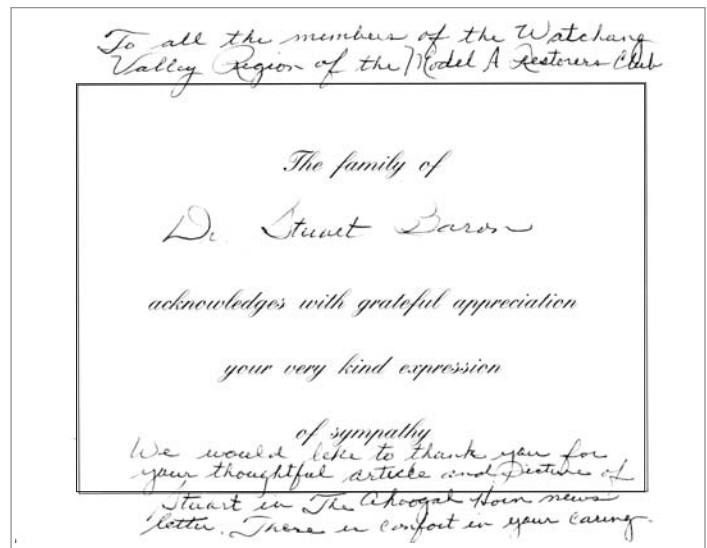 To all the members of the Watchang
Valley Region of the Model A Restorers Club
The family of
Dr. Stuart Baron
acknowledges with grateful appreciation
your very kind expression
of sympathy
We would like to thank you for
your thoughtful article and picture of
Stuart in The Ahoogal Horn news
letter. There is comfort in your caring.